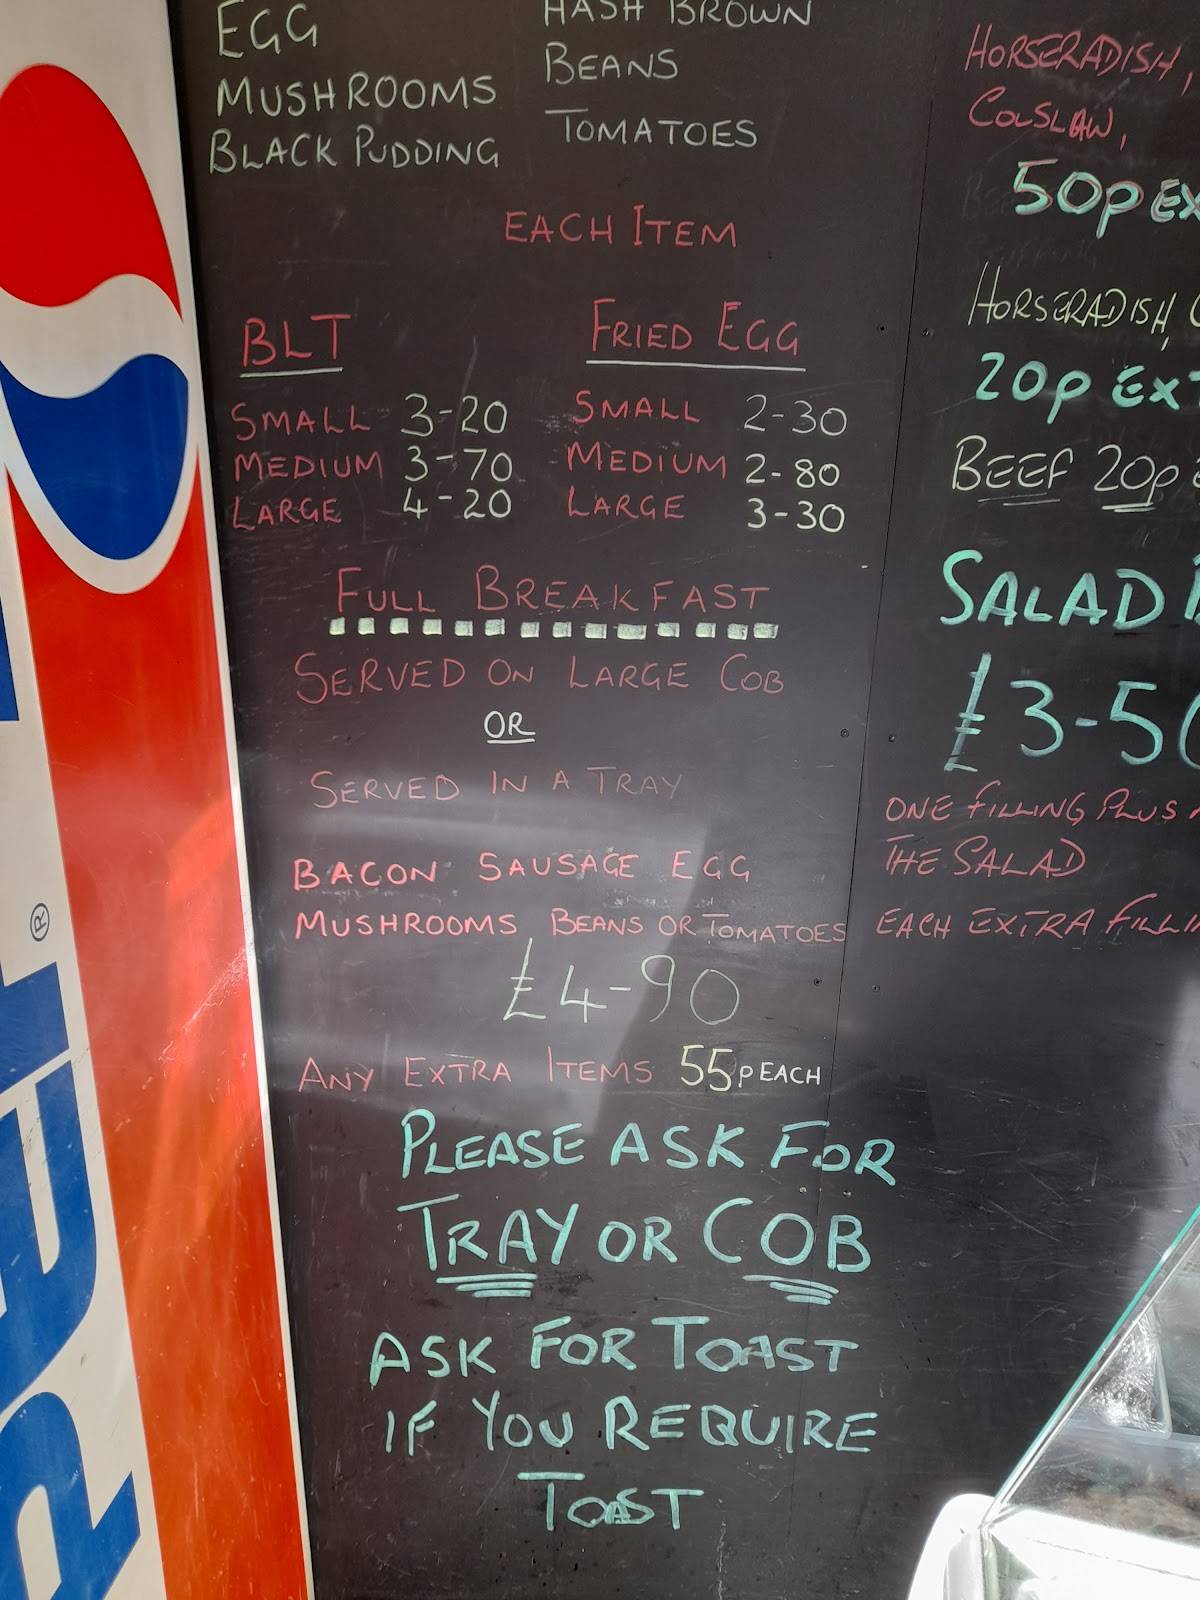 EGG
MUSHROOMS
BLACK PUDDING
HASH BROWN
BEANS
TOMATOES
EACH ITEM
BLT
SMALL 3-20
MEDIUM 3-70
LARGE 4-20
FRIED EGG
SMALL 2-30
MEDIUM 2-80
LARGE 3-30
FULL BREAKFAST
SERVED ON LARGE COB
OR
SERVED IN A TRAY
BACON SAUSAGE EGG
MUSHROOMS BEANS OR TOMATOES
£4-90
ANY EXTRA ITEMS 55P EACH
PLEASE ASK FOR
TRAY OR COB
ASK FOR TOAST
IF YOU REQUIRE
TOAST
HORSERADISH,
COLSLAW,
50p EX
HORSERADISH,
20p EXT
BEEF 20p
SALAD
£3-50
ONE FILLING PLUS
THE SALAD
EACH EXTRA FILLIN
PEPSI
®